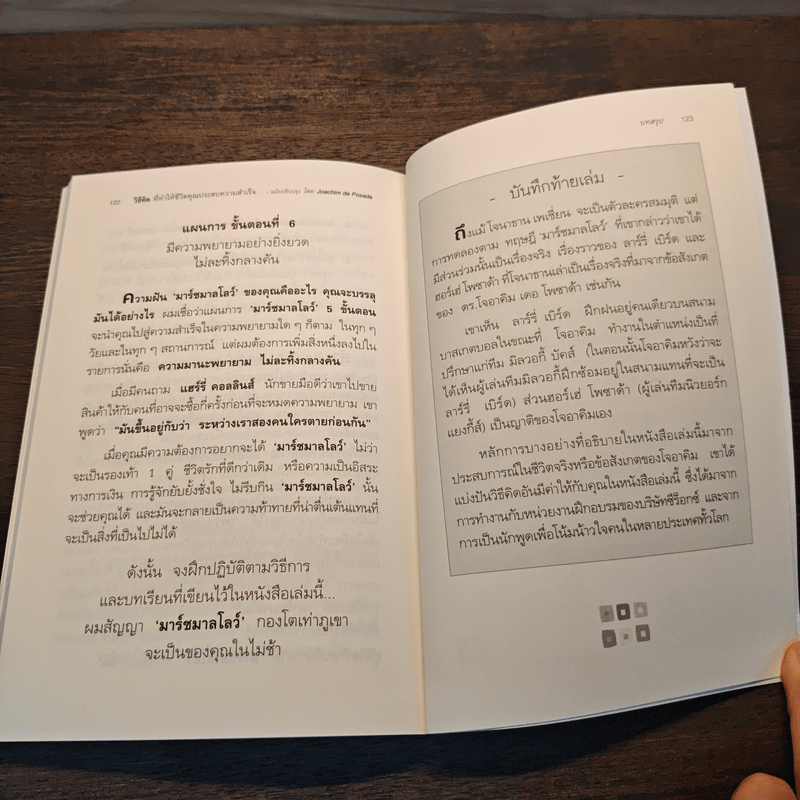 122 วิธีคิด ที่ทำให้ชีวิตคุณประสบความสำเร็จ... - ฉบับปรับปรุง โดย Joachim de Posada
แผนการ ขั้นตอนที่ 6
มีความพยายามอย่างยิ่งยวด
ไม่ละทิ้งกลางคัน
ความฝัน ‘มาร์ชมาลโลว์’ ของคุณคืออะไร คุณจะบรรลุ
มันได้อย่างไร ผมเชื่อว่าแผนการ ‘มาร์ชมาลโลว์’ 5 ขั้นตอน
จะนำคุณไปสู่ความสำเร็จในความพยายามใด ๆ ก็ตาม ในทุก ๆ
วัยและในทุก ๆ สถานการณ์ แต่ผมต้องการเพิ่มสิ่งหนึ่งลงไปใน
รายการนั่นคือ ความมานะพยายาม ไม่ละทิ้งกลางคัน
เมื่อมีคนถาม แฮร์รี่ คอลลินส์ นักขายมือดีว่าเขาไปขาย
สินค้าให้กับคนที่อาจจะซื้อกี่ครั้งก่อนที่จะหมดความพยายาม เขา
พูดว่า “มันขึ้นอยู่กับว่า ระหว่างเราสองคนใครตายก่อนกัน”
เมื่อคุณมีความต้องการอยากจะได้ ‘มาร์ชมาลโลว์’ ไม่ว่า
จะเป็นรองเท้า 1 คู่ ชีวิตรักที่ดีกว่าเดิม หรือความเป็นอิสระ
ทางการเงิน การรู้จักยับยั้งชั่งใจ ไม่รีบกิน ‘มาร์ชมาลโลว์’ นั้น
จะช่วยคุณได้ และมันจะกลายเป็นความท้าทายที่น่าตื่นเต้นแทนที่
จะเป็นสิ่งที่เป็นไปไม่ได้
ดังนั้น จงฝึกปฏิบัติตามวิธีการ
และบทเรียนที่เขียนไว้ในหนังสือเล่มนี้...
ผมสัญญา ‘มาร์ชมาลโลว์’ กองโตเท่าภูเขา
จะเป็นของคุณในไม่ช้า
บทสรุป 123
- บันทึกท้ายเล่ม -
ถึงแม้ โจนาธาน เพเชียน จะเป็นตัวละครสมมุติ แต่
การทดลองตาม ทฤษฎี ‘มาร์ชมาลโลว์’ ที่เขากล่าวว่าเขาได้
มีส่วนร่วมนั้นเป็นเรื่องจริง เรื่องราวของ ลาร์รี่ เบิร์ด และ
ฮอร์เฮ่ โพซาด้า ที่โจนาธานเล่าเป็นเรื่องจริงที่มาจากข้อสังเกต
ของ ดร.โจอาคิม เดอ โพซาด้า เช่นกัน
เขาเห็น ลาร์รี่ เบิร์ด ฝึกฝนอยู่คนเดียวบนสนาม
บาสเกตบอลในขณะที่ โจอาคิม ทำงานในตำแหน่งเป็นที่
ปรึกษาแก่ทีม มิลวอกี้ บัคส์ (ในตอนนั้นโจอาคิมหวังว่าจะ
ได้เห็นผู้เล่นทีมมิลวอกี้ฝึกซ้อมอยู่ในสนามแทนที่จะเป็น
ลาร์รี่ เบิร์ด) ส่วนฮอร์เฮ่ โพซาด้า (ผู้เล่นทีมนิวยอร์ก
แยงกี้ส์) เป็นญาติของโจอาคิมเอง
หลักการบางอย่างที่อธิบายในหนังสือเล่มนี้มาจาก
ประสบการณ์ในชีวิตจริงหรือข้อสังเกตของโจอาคิม เขาได้
แบ่งปันวิธีคิดอันมีค่าให้กับคุณในหนังสือเล่มนี้ ซึ่งได้มาจาก
การทำงานกับหน่วยงานฝึกอบรมของบริษัทซีร็อกซ์ และจาก
การเป็นนักพูดเพื่อโน้มน้าวใจคนในหลายประเทศทั่วโลก